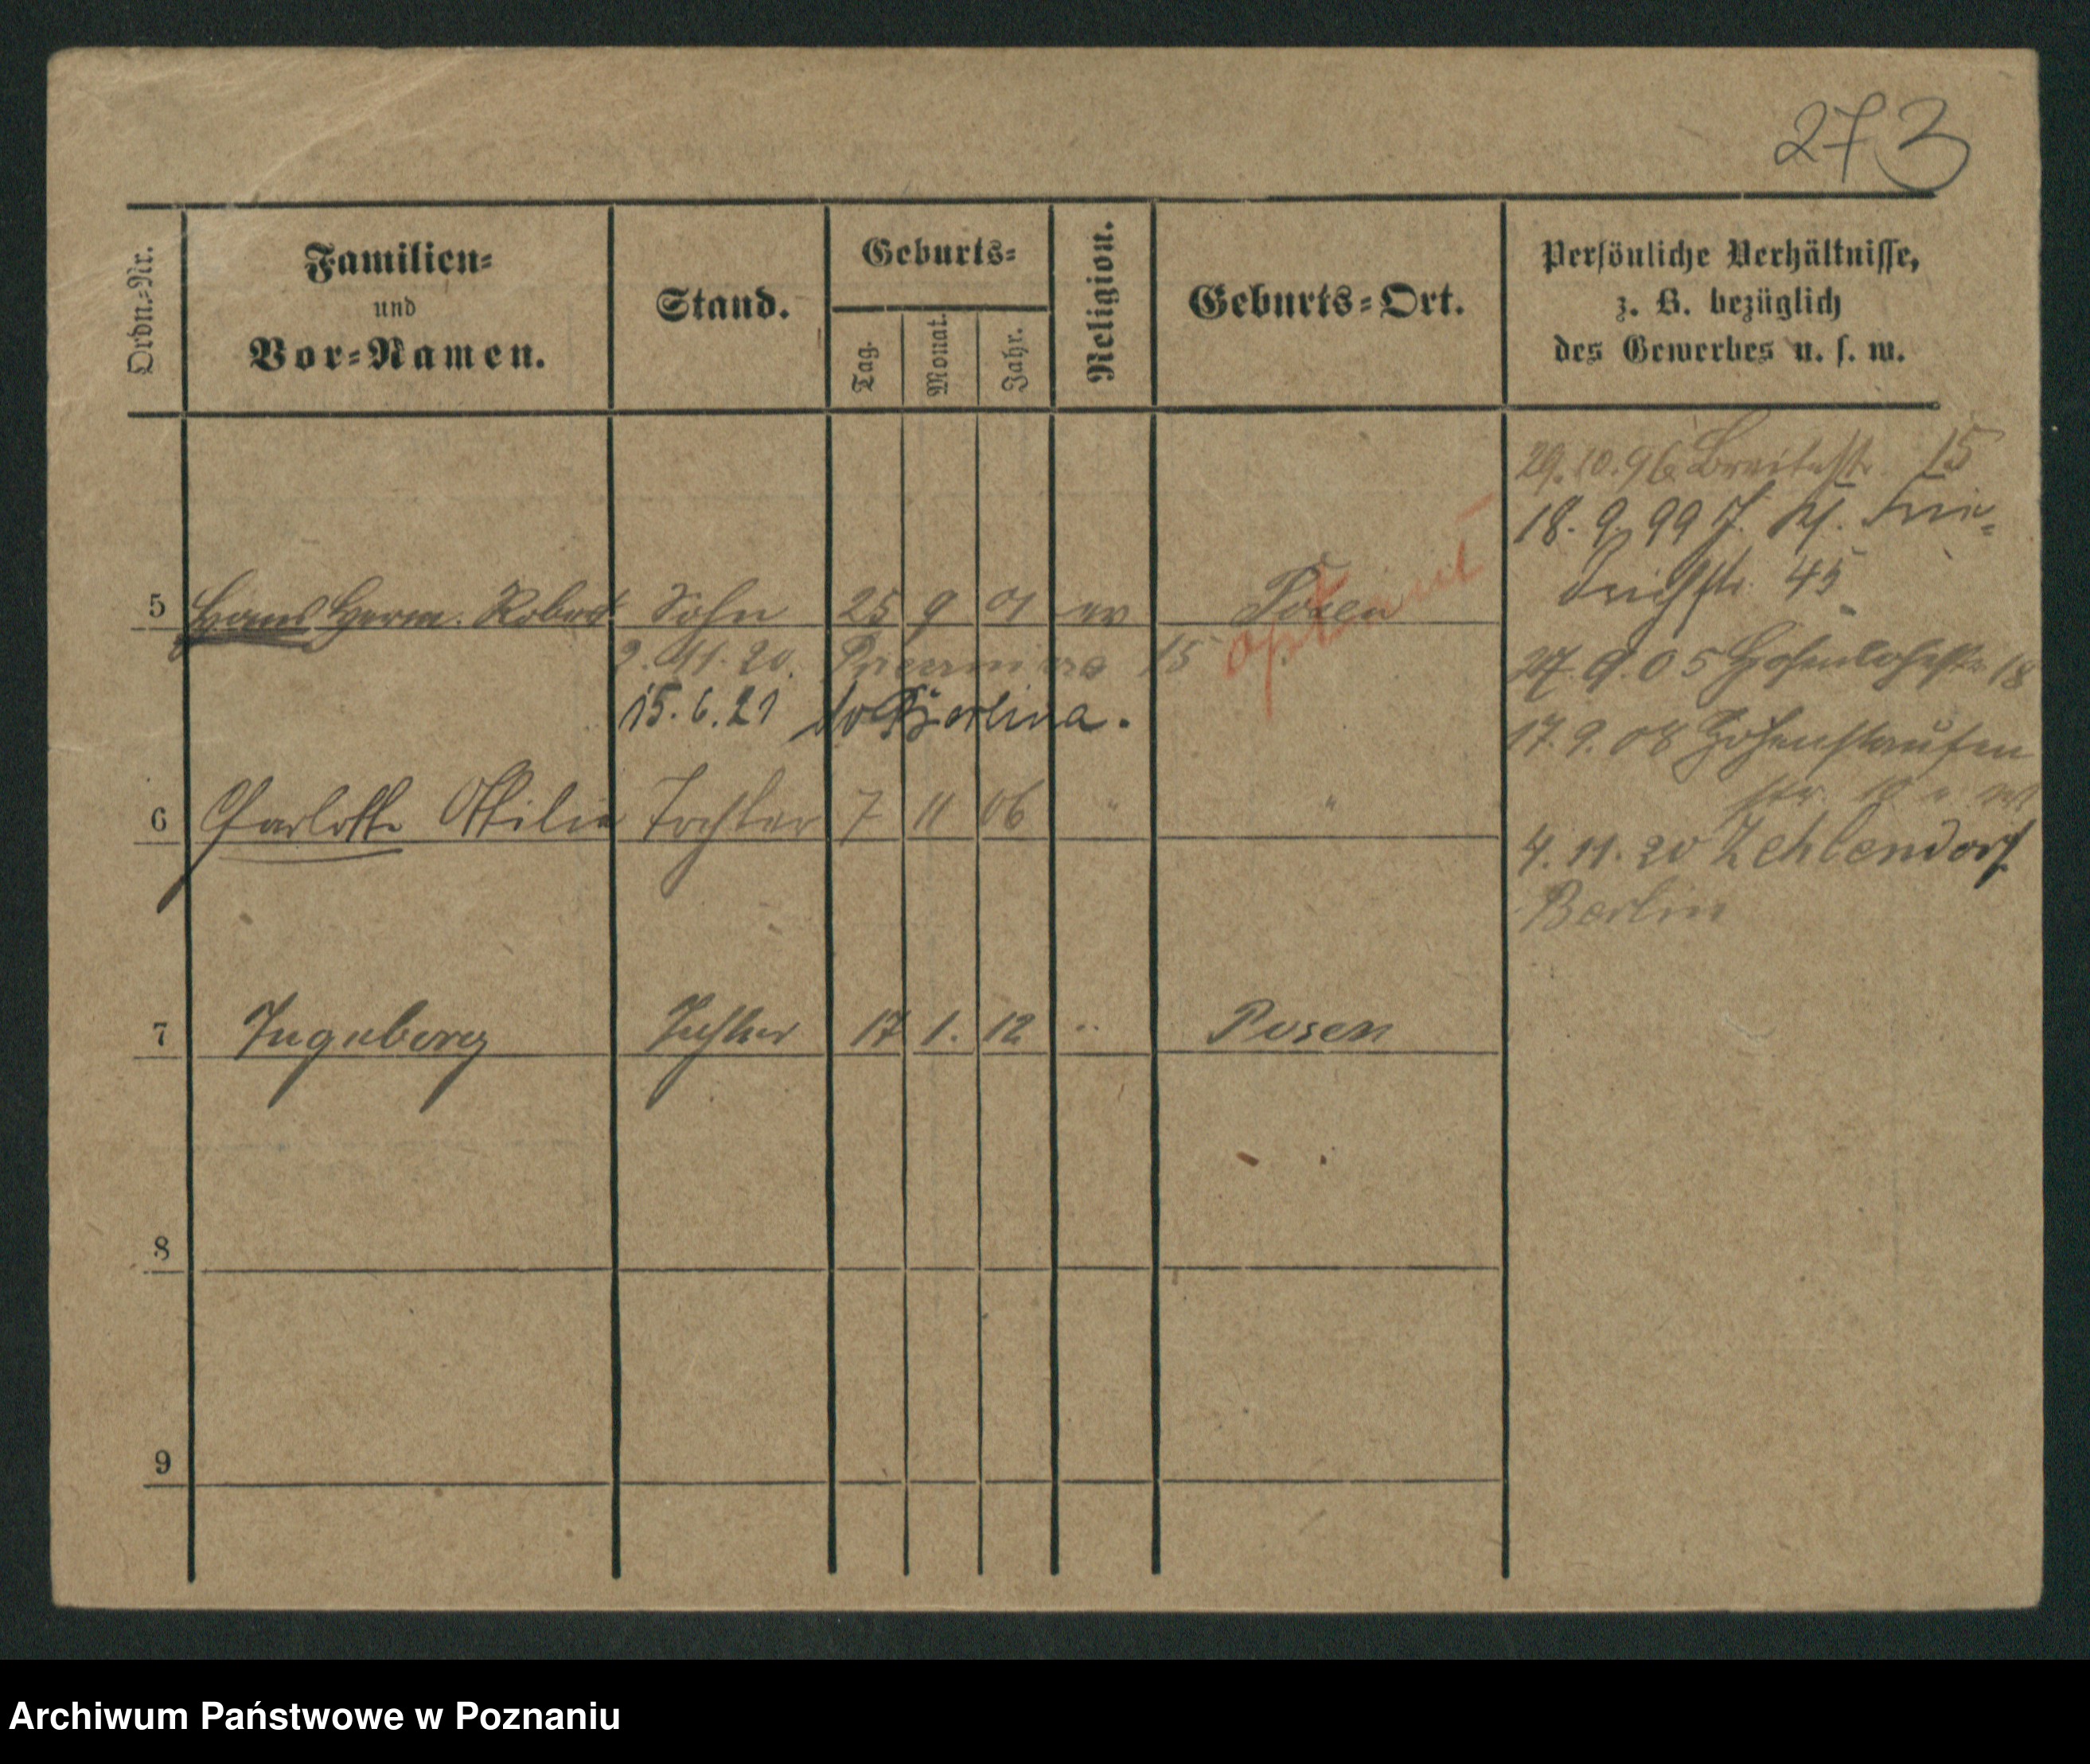 273
Ordn.-Nr.
Familien-
und
Vor-Namen.
Stand.
Geburts-
Tag.
Monat.
Jahr.
Religion.
Geburts-Ort.
Persönliche Verhältnisse,
z. B. bezüglich
des Gewerbes u. s. w.
29.10.96 Breitestr. 15
18. 9. 99 Frie-
drichstr. 45
27. 9. 05 Hohenlohestr. 18
17. 9. 08 Hohenstaufen
str.
4. 11. 20 Zehlendorf
Berlin
5 Hans Herm. Robert Sohn 25 9 01 ev Posen
optant
2. 11. 20. 15
15. 6. 21 do Berlina.
6 Charlotte Ottilie Tochter 7 11 06 " "
7 Ingeborg Tochter 17 1. 12 " Posen
8
9
Archiwum Państwowe w Poznaniu